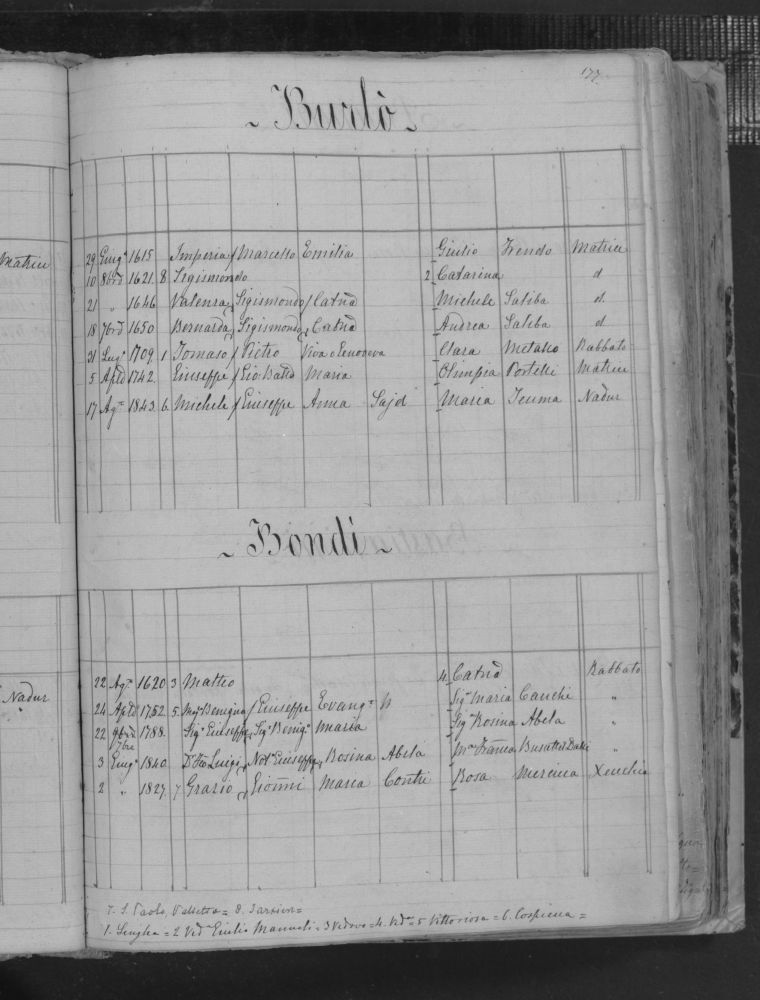 177.
~ Burlò ~
Matrice
29 Giugº 1615 Imperia / Marcello Emilia Giulio Xendo Matrice
10 8bre 1621. 8 Sigismondo 2 Catarina d
21 " 1646 Valenza / Sigismondo / Catna Michele Saliba d.
18 7bre 1650 Bernarda / Sigismondo / Catna Andrea Saliba d
31 Lugº 1709. 1 Tomaso / Pietro Viva o Genoveva Clara Metallo Rabbato
5 Aple 1742. Giuseppe / Gio: Batta Maria Olimpia Portelli Matrice
17 Agº 1843. 6. Michele / Giuseppe Anna Sajd Maria Teuma Nadur
~ Bondì ~
Nadur
22 Agº 1620 3 Matteo 4. Catna Rabbato
24 Aple 1752. 5. Benigno / Giuseppe Evangª N Sigª Maria Cauchi "
22 9bre 1788. Sigr Giuseppe / Sigr Benigº Maria Sigª Rosina Abela "
7bre
3 Giugº 1840. Luigi / Notr Giuseppe / Rosina Abela Franca Busuttil "
2 " 1827. 7 Grazio / Gionni Maria Contri Rosa Mercieca Xeuchia
7. S. Paolo, Valletta = 8. Tarxien =
1. Senglea = 2 Vedª Giulio Manueli = 3 Vedovo = 4. Vedª = 5 Vittoriosa = 6. Cospicua =